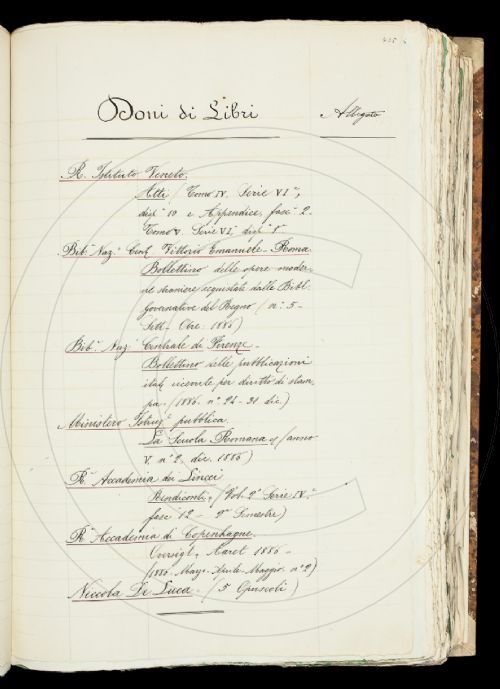 Doni di Libri
Allegato
R. Istituto Veneto.
Atti (Tomo IV. Serie VI.ª,
disp.ª 10 e Appendice, fasc. 2.
Tomo V. Serie VI.ª disp.ª 1ª
Bib.ª Naz.e Cent. Vittorio Emanuele - Roma
Bollettino delle opere moder-
ne straniere acquistate dalle Bibl.
Governative del Regno (n.º 5 -
Sett. Obre. 1886)
Bib.ª Naz.e Centrale di Firenze -
Bollettino delle pubblicazioni
ital. ricevute per diritto di stam-
pa. (1886. n.º 24 - 31 dic.)
Ministero Istruz.e pubblica.
La Scuola Romana (anno
V. n.º 2. dic. 1886)
R. Accademia dei Lincei
Rendiconti, (Vol. 2º Serie IV.ª
fasc. 12 - 2º Semestre)
R. Accademia di Copenhague.
Oversigt, Aaret 1886 -
(1886. Marzo-Aprile-Maggio. n.º 2)
Niccola De Luca. (5 Opuscoli)